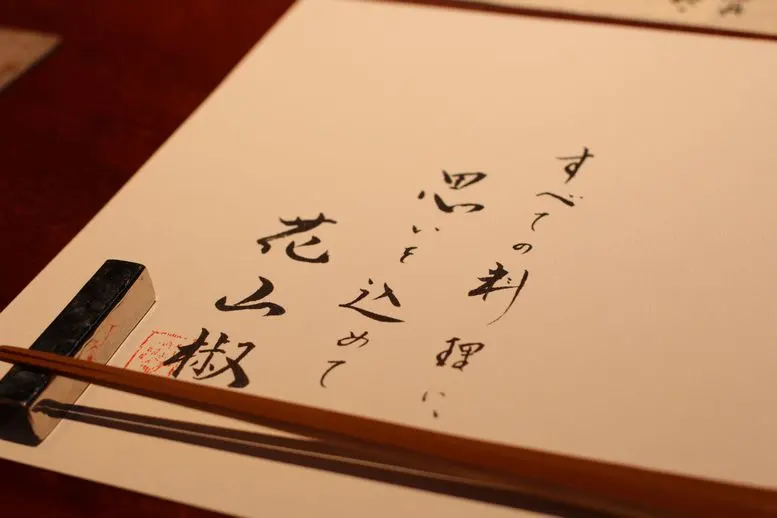 すべての料理に
思いを込めて
花山椒